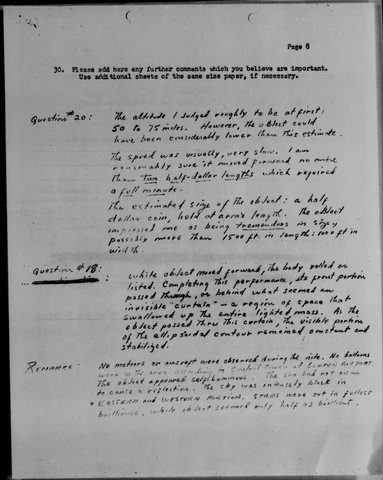 Page 6
30. Please add here any further comments which you believe are important.
Use additional sheets of the same size paper, if necessary.
Question #20: The altitude I judged roughly to be at first:
50 to 75 miles. However, the object could
have been considerably lower than this estimate.
The speed was visually, very slow. I am
reasonably sure it moved forward no more
than two half-dollar lengths which required
a full minute.
The estimated size of the object: a half
dollar coin, held at arm's length. The object
impressed me as being tremendous in size,
possibly more than 1500 ft. in length: 1000 ft in
width.
Question #18: While object moved forward, the body rolled or
listed. Completing this performance, its front portion
passed through, or behind what seemed an
invisible "curtain" - a region of space that
swallowed up the entire lighted mass. As the
object passed thru this curtain, the visible portion
of the ellipsoidal contour remained constant and
stabilized.
Remarks: No meteors or aircraft were observed during the No balloons
were in the area according to Control Tower at AIRPORT
The object appeared self luminous. The sun had not risen
to cause a reflection. The sky was intensely black in
EASTERN and WESTERN PORTION. STARS were out in fullest
brilliance, while object seemed only half as brilliant.